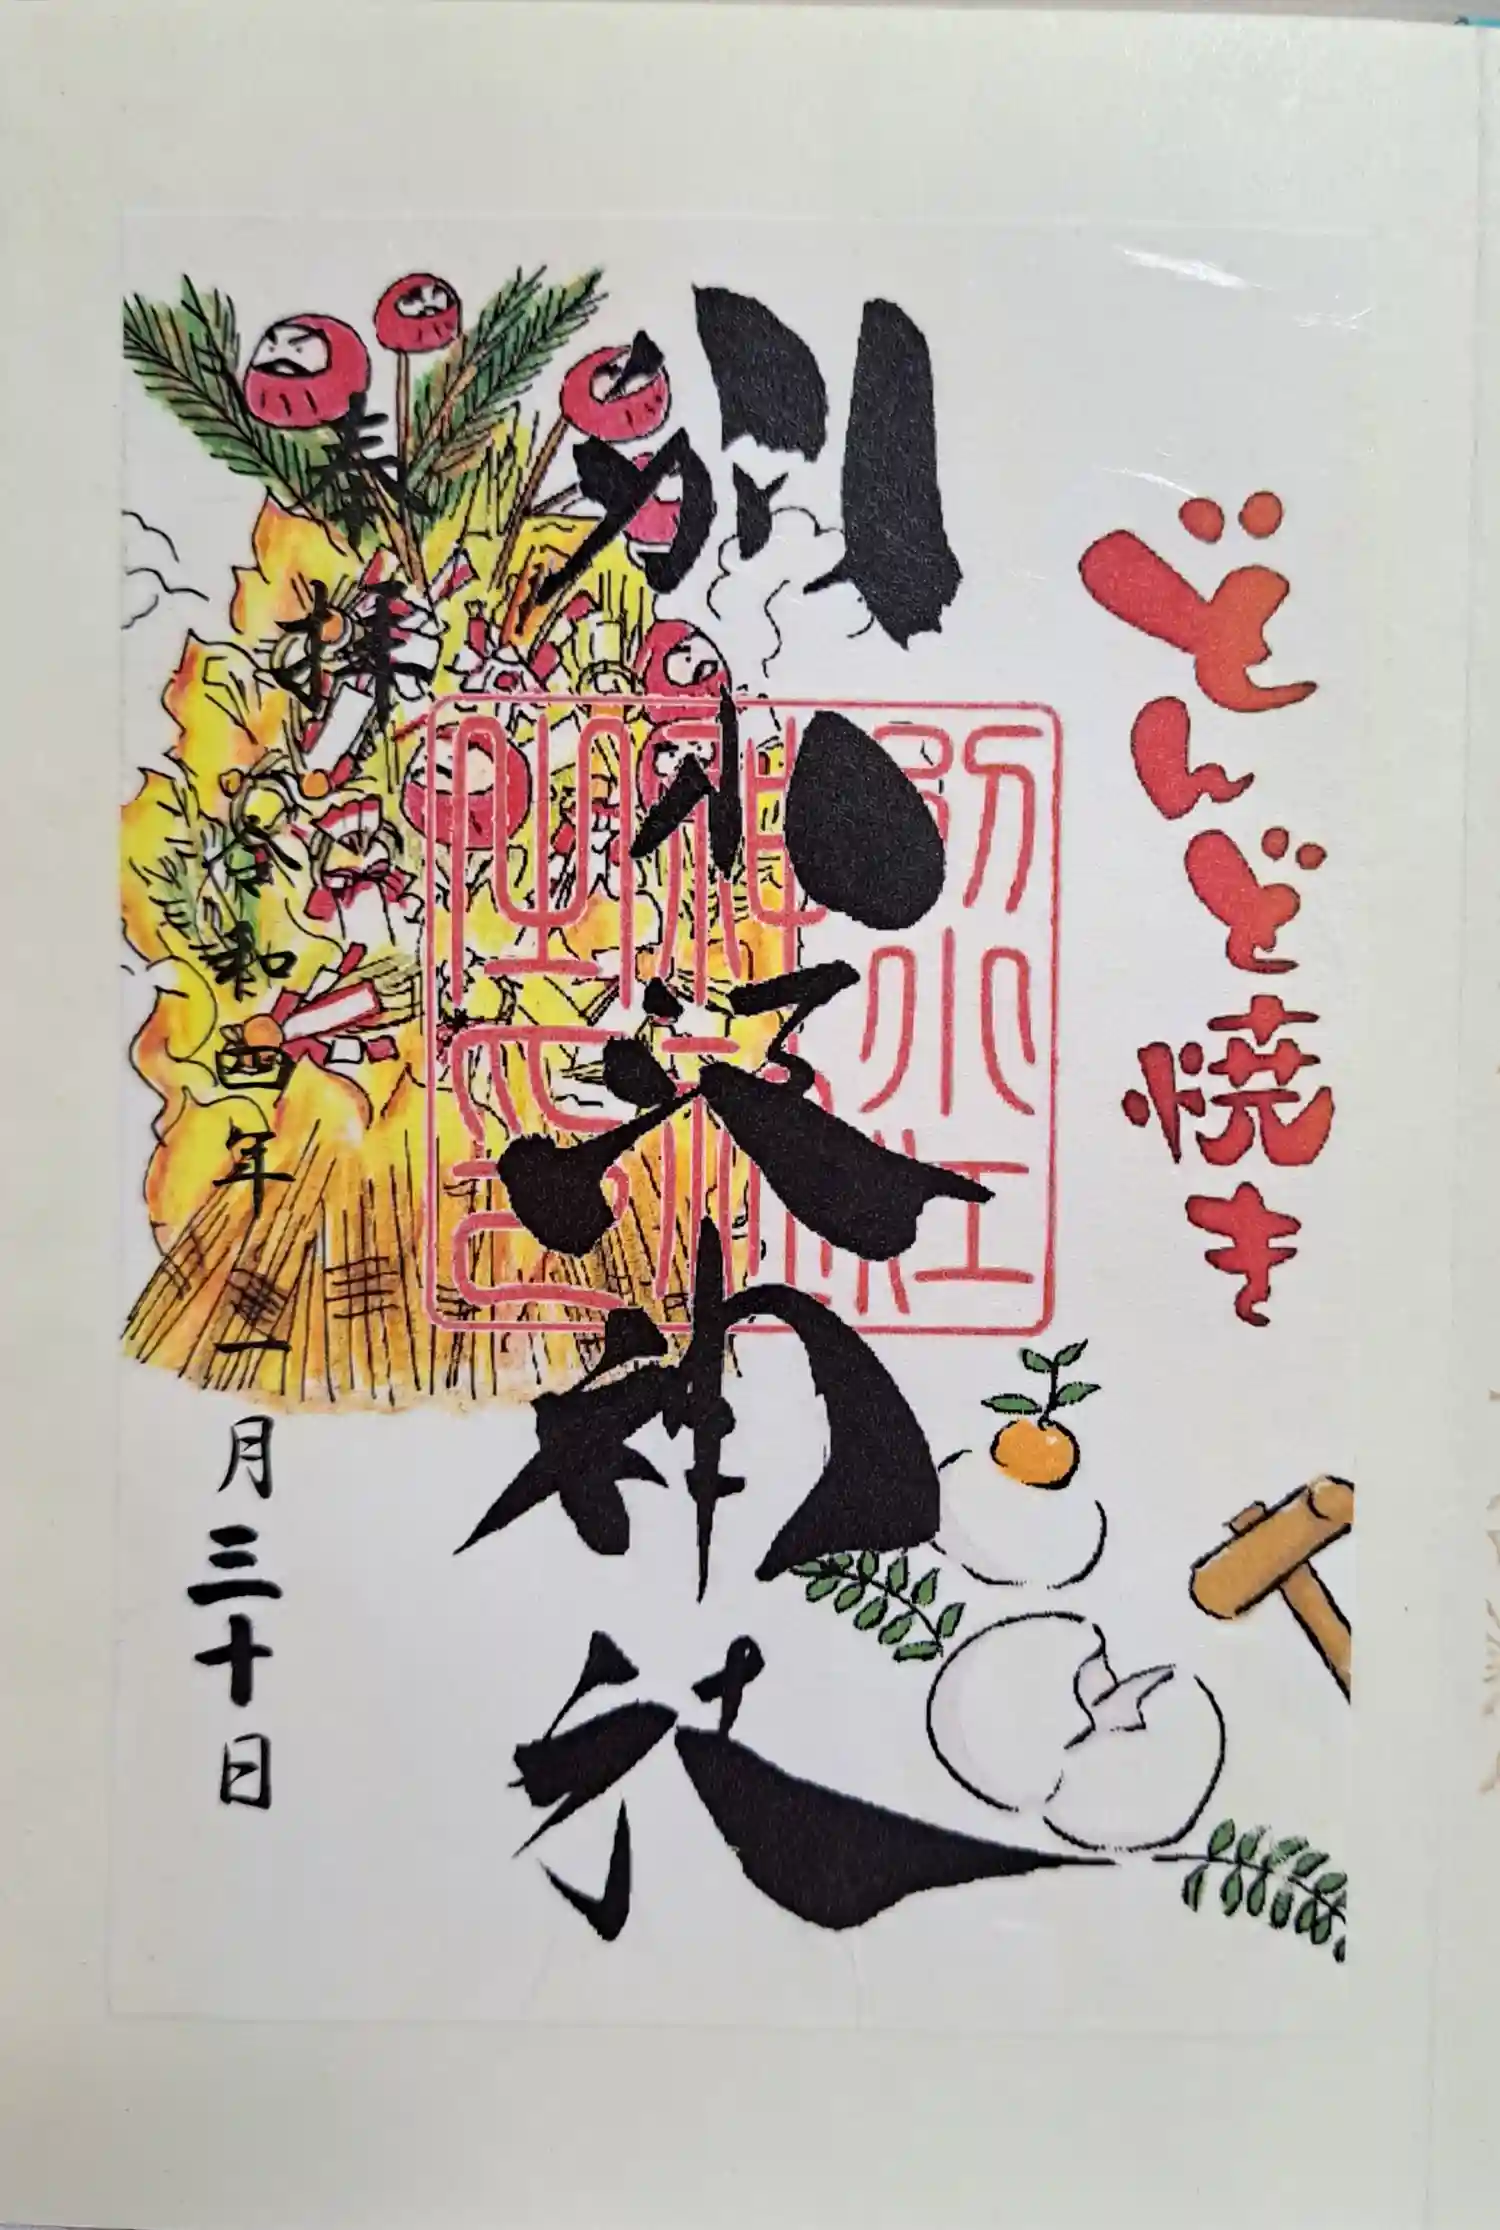 どんど焼き
別小江神社
奉拝
令和四年一月三十日